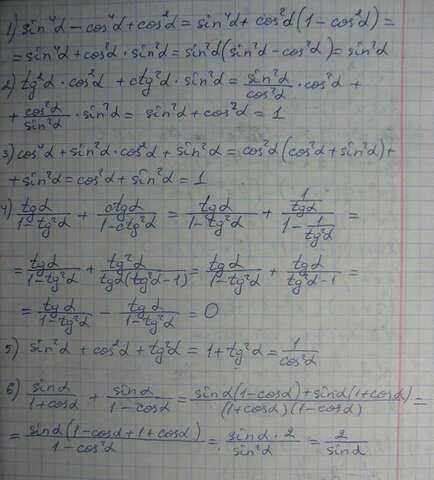 1) sin⁴α − cos⁴α + cos²α = sin⁴α + cos²α(1 − cos²α) =
= sin⁴α + cos²α · sin²α = sin²α(sin²α − cos²α) = sin²α
2) tg²α · cos²α + ctg²α · sin²α = sin²α/cos²α · cos²α +
+ cos²α/sin²α · sin²α = sin²α + cos²α = 1
3) cos⁴α + sin²α · cos²α + sin²α = cos²α(cos²α + sin²α) +
+ sin²α = cos²α + sin²α = 1
4) tgα/(1 − tg²α) + ctgα/(1 − ctg²α) = tgα/(1 − tg²α) + (1/tgα)/(1 − 1/tg²α) =
= tgα/(1 − tg²α) + tg²α/(tgα(tg²α − 1)) = tgα/(1 − tg²α) + tgα/(tg²α − 1) =
= tgα/(1 − tg²α) − tgα/(1 − tg²α) = 0
5) sin²α + cos²α + tg²α = 1 + tg²α = 1/cos²α
6) sinα/(1 + cosα) + sinα/(1 − cosα) = (sinα(1 − cosα) + sinα(1 + cosα))/((1 + cosα)(1 − cosα)) =
= sinα(1 − cosα + 1 + cosα)/(1 − cos²α) = sinα · 2/sin²α = 2/sinα